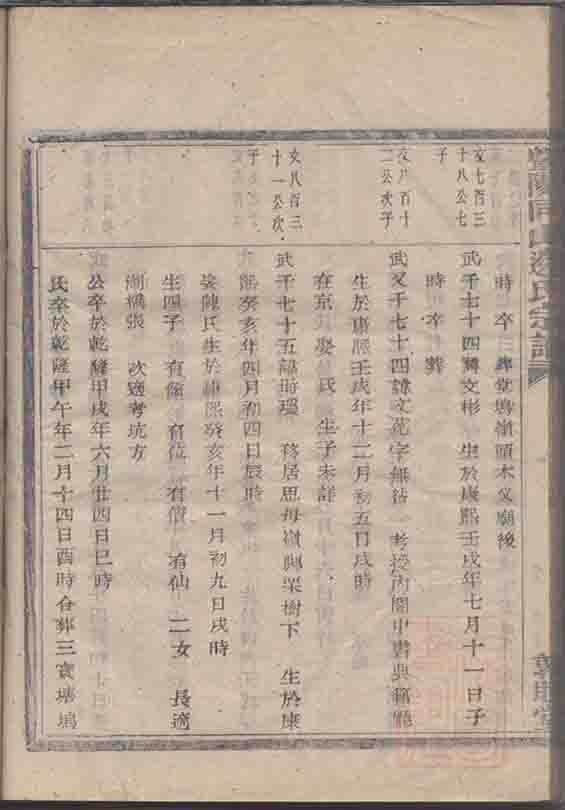 時 卒 葬
武千七十四 諱文彬 生於康熙壬戌年七月十一日子
時 卒 葬
武又千七十四諱文 字 考授內閣中書典籍廳
生於康熙壬戌年十二月初五日戌時
在京 娶 氏 生子未詳
武千七十五諱時 移居思母嶺興栗樹下 生於康
熙癸亥年四月初四日辰時
娶陳氏生於康熙癸亥年十一月初九日戌時
生四子 有 有位 有 有仙 二女 長適
張 次適考坑方
公卒於乾隆甲戌年六月廿四日巳時
氏卒於乾隆甲午年二月十四日酉時合葬三寶塘塢
文七百三
十八公七
子
文八百十
二公次子
文八百三
十一公次
子
氏宗譜